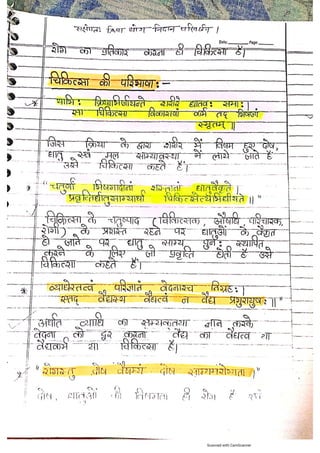 संक्षेपतः क्रिया योग निदान परिवर्जनम् ।
Date Page
रोग का प्रतिकार करना ही चिकित्सा है।
चिकित्सा की परिभाषा :-
याभिः क्रियाभिर्जायन्ते शरीरे धातवः समाः ।
सा चिकित्सा विकाराणां कर्म तद् भिषजां
स्मृतम् ॥
जिस क्रिया के द्वारा शरीर में विषम हुए दोष,
धातु एवं मल साम्यावस्था में लाये जाते हैं
उसे चिकित्सा कहते हैं।
"चतुर्णां भिषगादीनां शस्तानां धातुवैकृते ।
प्रवृत्तिर्धातुसाम्यार्था चिकित्सेत्यभिधीयते ॥
चिकित्सा के चतुष्पाद (चिकित्सक, औषधि, परिचारक,
रोगी) के प्रशस्त रहने पर धातुओं के वैकृत
हो जाने पर धातु साम्य पुनः स्थापित
करने के लिए जो प्रवृत्ति होती है उसे
चिकित्सा कहते हैं।
व्याधेस्तत्वं परिज्ञानं वेदनायाश्च निग्रहः ।
एतद् वैद्यस्य वैद्यत्वं न वैद्यः प्रभुरायुषः ॥"
अर्थात व्याधि का सम्यकतया ज्ञान करके
वेदना को दूर करना वैद्य का वैद्यत्व या
वैद्यकर्म या चिकित्सा है।
"रोगस्तु दोष वैषम्यं दोष साम्यमरोग्यता ।"
दोष, धातुओं की विषमता ही रोग है एवं
Scanned with CamScanner